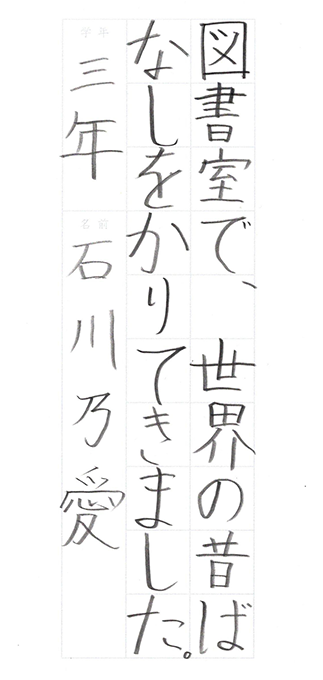 図書室で、世界の昔ば
なしをかりてきました。
学年 三年 名前 石川乃愛